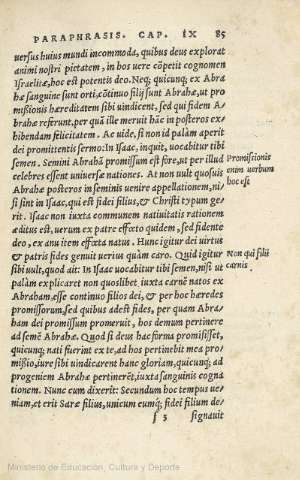 PARAPHRASIS. CAP. IX 85
uersus huius mundi incommoda, quibus deus explorat
animi nostri pietatem, in hos uere cõpetit cognomen
Israelitæ, hoc est potentis deo. Neq; quicunq; ex Abra
hæ sanguine sunt orti, cõtinuo filij sunt Abrahæ, ut pro
missionis hæreditatem sibi uindicent, sed qui fidem A=
brahæ referunt, per quã ille meruit hãc in posteros ex=
hibendam felicitatem. Ac uide, si non id palàm aperit
dei promittentis sermo: In Isaac, inquit, uocabitur tibi
semen. Semini Abrahæ promissum est fore, ut per illud
celebres essent uniuersæ nationes. At non uult quosuis
Abrahæ posteros in seminis uenire appellationem, ni=
si sint in Isaac, qui est fidei filius, & Christi typum ge=
rit. Isaac non iuxta communem natiuitatis rationem
æditus est, uerum ex patre effœto quidem, sed fidente
deo, ex anu item effœta natus. Hunc igitur dei uirtus
& patris fides genuit uerius quàm caro. Quid igitur
sibi uult, quod ait: In Isaac uocabitur tibi semen, nisi ut
palàm explicaret non quoslibet iuxta carnẽ natos ex
Abraham, esse continuo filios dei, & per hoc hæredes
promissorum, sed quibus adest fides, per quam Abra=
ham dei promissum promeruit, hos demum pertinere
ad semẽ Abrahæ. Quod si deus hac forma promisisset,
quicunq; nati fuerint ex te, ad hos pertinebit mea pro=
missio, iure sibi uindicarent hanc gloriam, quicunq; ad
progeniem Abrahæ pertinerẽt, iuxta sanguinis cogna
tionem. Nunc cum dixerit: Secundum hoc tempus ue=
niam, et erit Saræ filius, unicum eumq́; fidei filium de=
f 5 signauit
Promissionis
enim uerbum
hoc est
Non qui filij
carnis
Ministerio de Educación, Cultura y Deporte